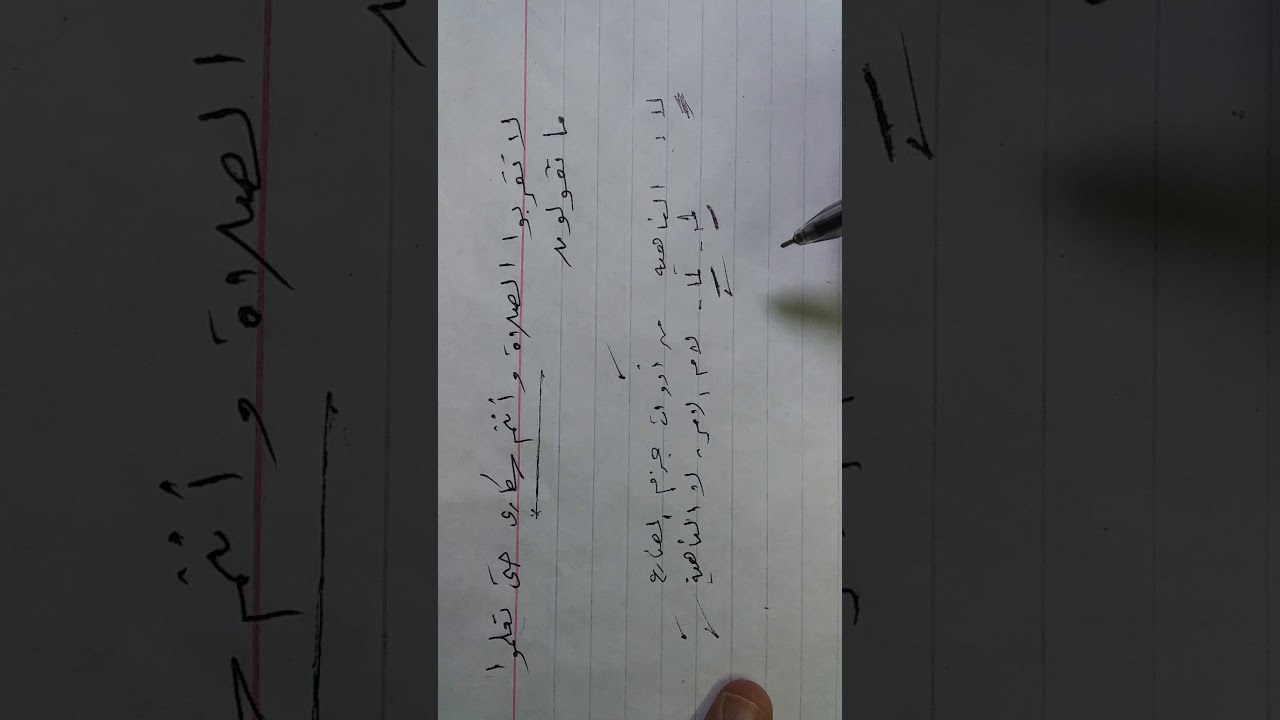 لا تقربوا الصلاة و أنتم سكارى حتى تعلموا
ما تقولون
لا الناهية من أدوات جزم المضارع
لم - لمّا - لام الأمر - لا الناهية